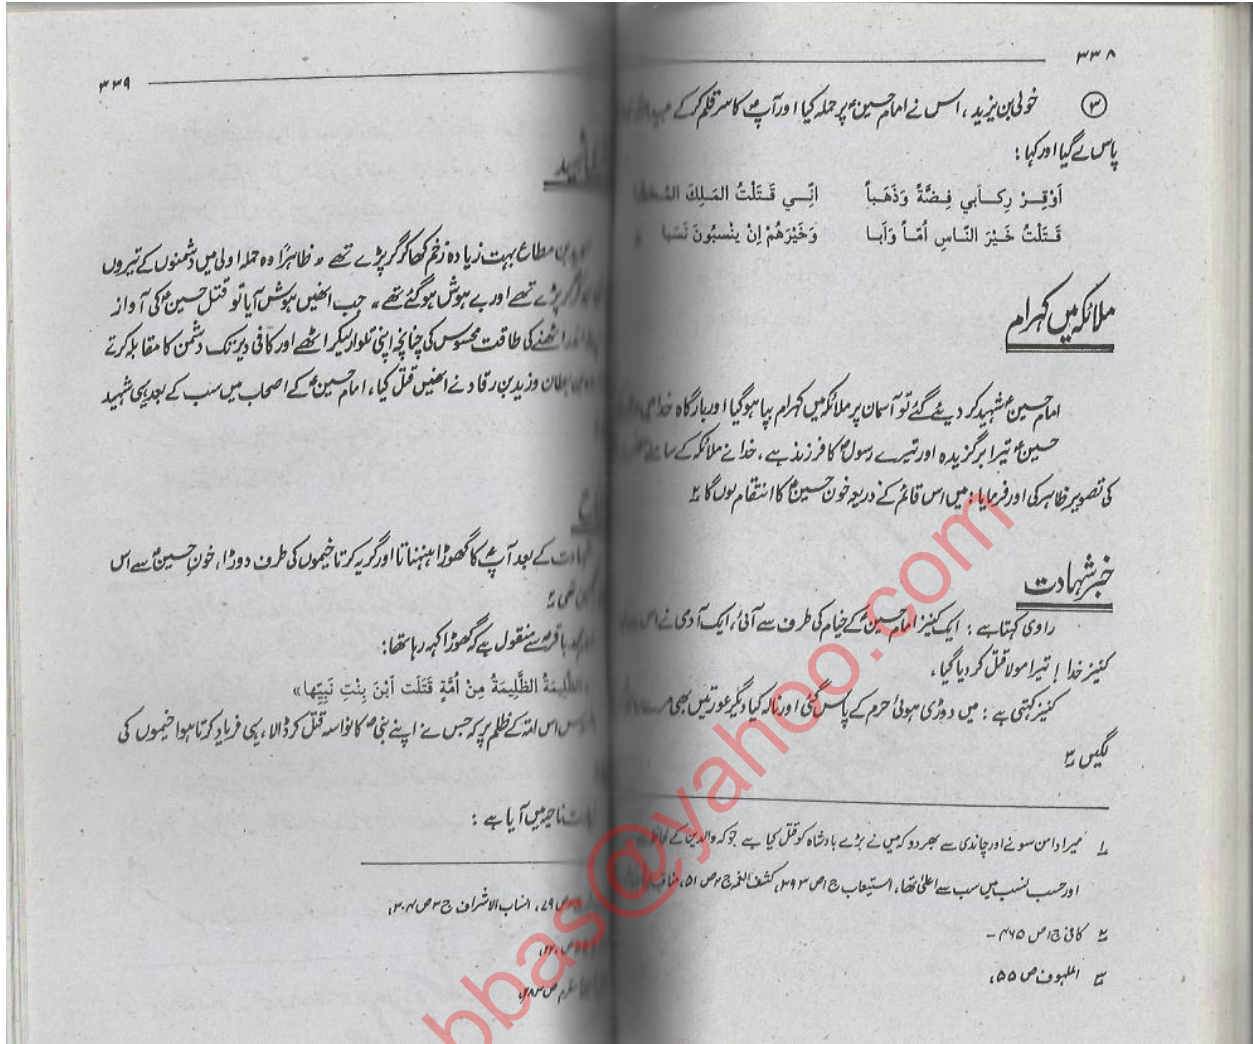 ۳۳۸
③ خولی بن یزید، اس نے امام حسینؑ پر حملہ کیا اور آپؑ کا سر قلم کر کے
پاس لے گیا اور کہا:
اَوْقِرْ رِكَابي فِضَّةً وَذَهَباً اِنّي قَتَلْتُ المَلِكَ
قَتَلْتُ خَيْرَ النّاسِ اُمّاً وَاَبا وَخَيْرَهُمْ اِنْ يَنْسبُونَ نَسَبا
ملائکہ میں کہرام
امام حسینؑ شہید کر دیئے گئے تو آسمان پر ملائکہ میں کہرام بپا ہو گیا اور بارگاہ خدا میں
حسینؑ تیرا برگزیدہ اور تیرے رسولؐ کا فرزند ہے، خدا نے ملائکہ کے سامنے
کی تصویر ظاہر کی اور فرمایا: میں اس قائم کے ذریعہ خون حسینؑ کا انتقام لوں گا ۲
خبر شہادت
راوی کہتا ہے: ایک کنیز امام حسینؑ کے خیام کی طرف سے آئی، ایک آدمی نے اس
کنیز خدا! تیرا مولا قتل کر دیا گیا،
کنیز کہتی ہے: میں دوڑی ہوئی حرم کے پاس گئی اور نالہ کیا دیگر عورتیں بھی
لگیں ۳
۱ میرا دامن سونے اور چاندی سے بھر دو کہ میں نے بڑے بادشاہ کو قتل کیا ہے جو کہ والدین کے لحاظ
اور حسب نسب میں سب سے اعلیٰ تھا، استیعاب ج۱ ص ۳۹۳، کشف الغمہ ج۲ ص ۵۱،
۲ کافی ج۱ ص ۴۶۵ -
۳ الملہوف ص ۵۵،
۳۳۹
بن مطاع بہت زیادہ زخم کھا کر گر پڑے تھے، ظاہراً وہ حملہ اولیٰ میں دشمنوں کے تیروں
گر پڑے تھے اور بے ہوش ہو گئے تھے، جب انھیں ہوش آیا تو قتل حسینؑ کی آواز
اٹھنے کی طاقت محسوس کی چنانچہ اپنی تلوار لیکر اٹھے اور کافی دیر تک دشمن کا مقابلہ کرتے
بن بطان و زید بن رقاد نے انھیں قتل کیا، امام حسینؑ کے اصحاب میں سب کے بعد یہی شہید
کے بعد آپؑ کا گھوڑا ہنہناتا اور گریہ کرتا خیموں کی طرف دوڑا، خون حسینؑ سے اس
تھی
باقرؑ سے منقول ہے کہ گھوڑا کہہ رہا تھا:
الظَّليمَةُ الظَّليمَةُ مِنْ اُمَّةٍ قَتَلَت اِبْنَ بِنْتِ نَبِيِّها»
اس امت کے ظلم پر کہ جس نے اپنے نبیؐ کا نواسہ قتل کر ڈالا، یہی فریاد کرتا ہوا خیموں کی
ناحیہ میں آیا ہے:
ص ۷۹، انساب الاشراف ج۳ ص ۲۰۴،
مقرم ص ۲۸۳،
bbas@yahoo.com